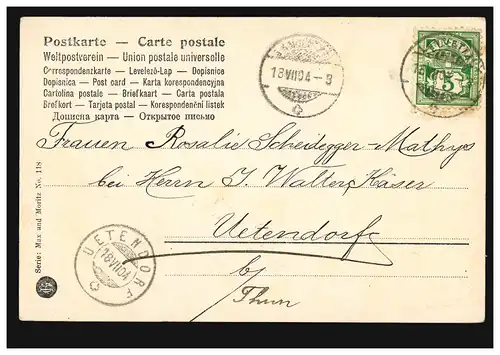 Postkarte — Carte postale
Weltpostverein — Union postale universelle
Correspondenzkarte — Levelező-Lap — Dopisnice
Dopisnica — Post card — Karta korespondencyjna
Cartolina postale — Briefkaart — Carta postala
Brefkort — Tarjeta postal — Korespondenční listek
Дописна карта — Открытое письмо
18 VII 04 - 8
5
Frauen Rosalie Scheidegger-Mathys
bei Herrn J. Walter, Käser
Uetendorf
b/
Thun
UETENDORF
18 VII 04
Serie: Max und Moritz No. 118